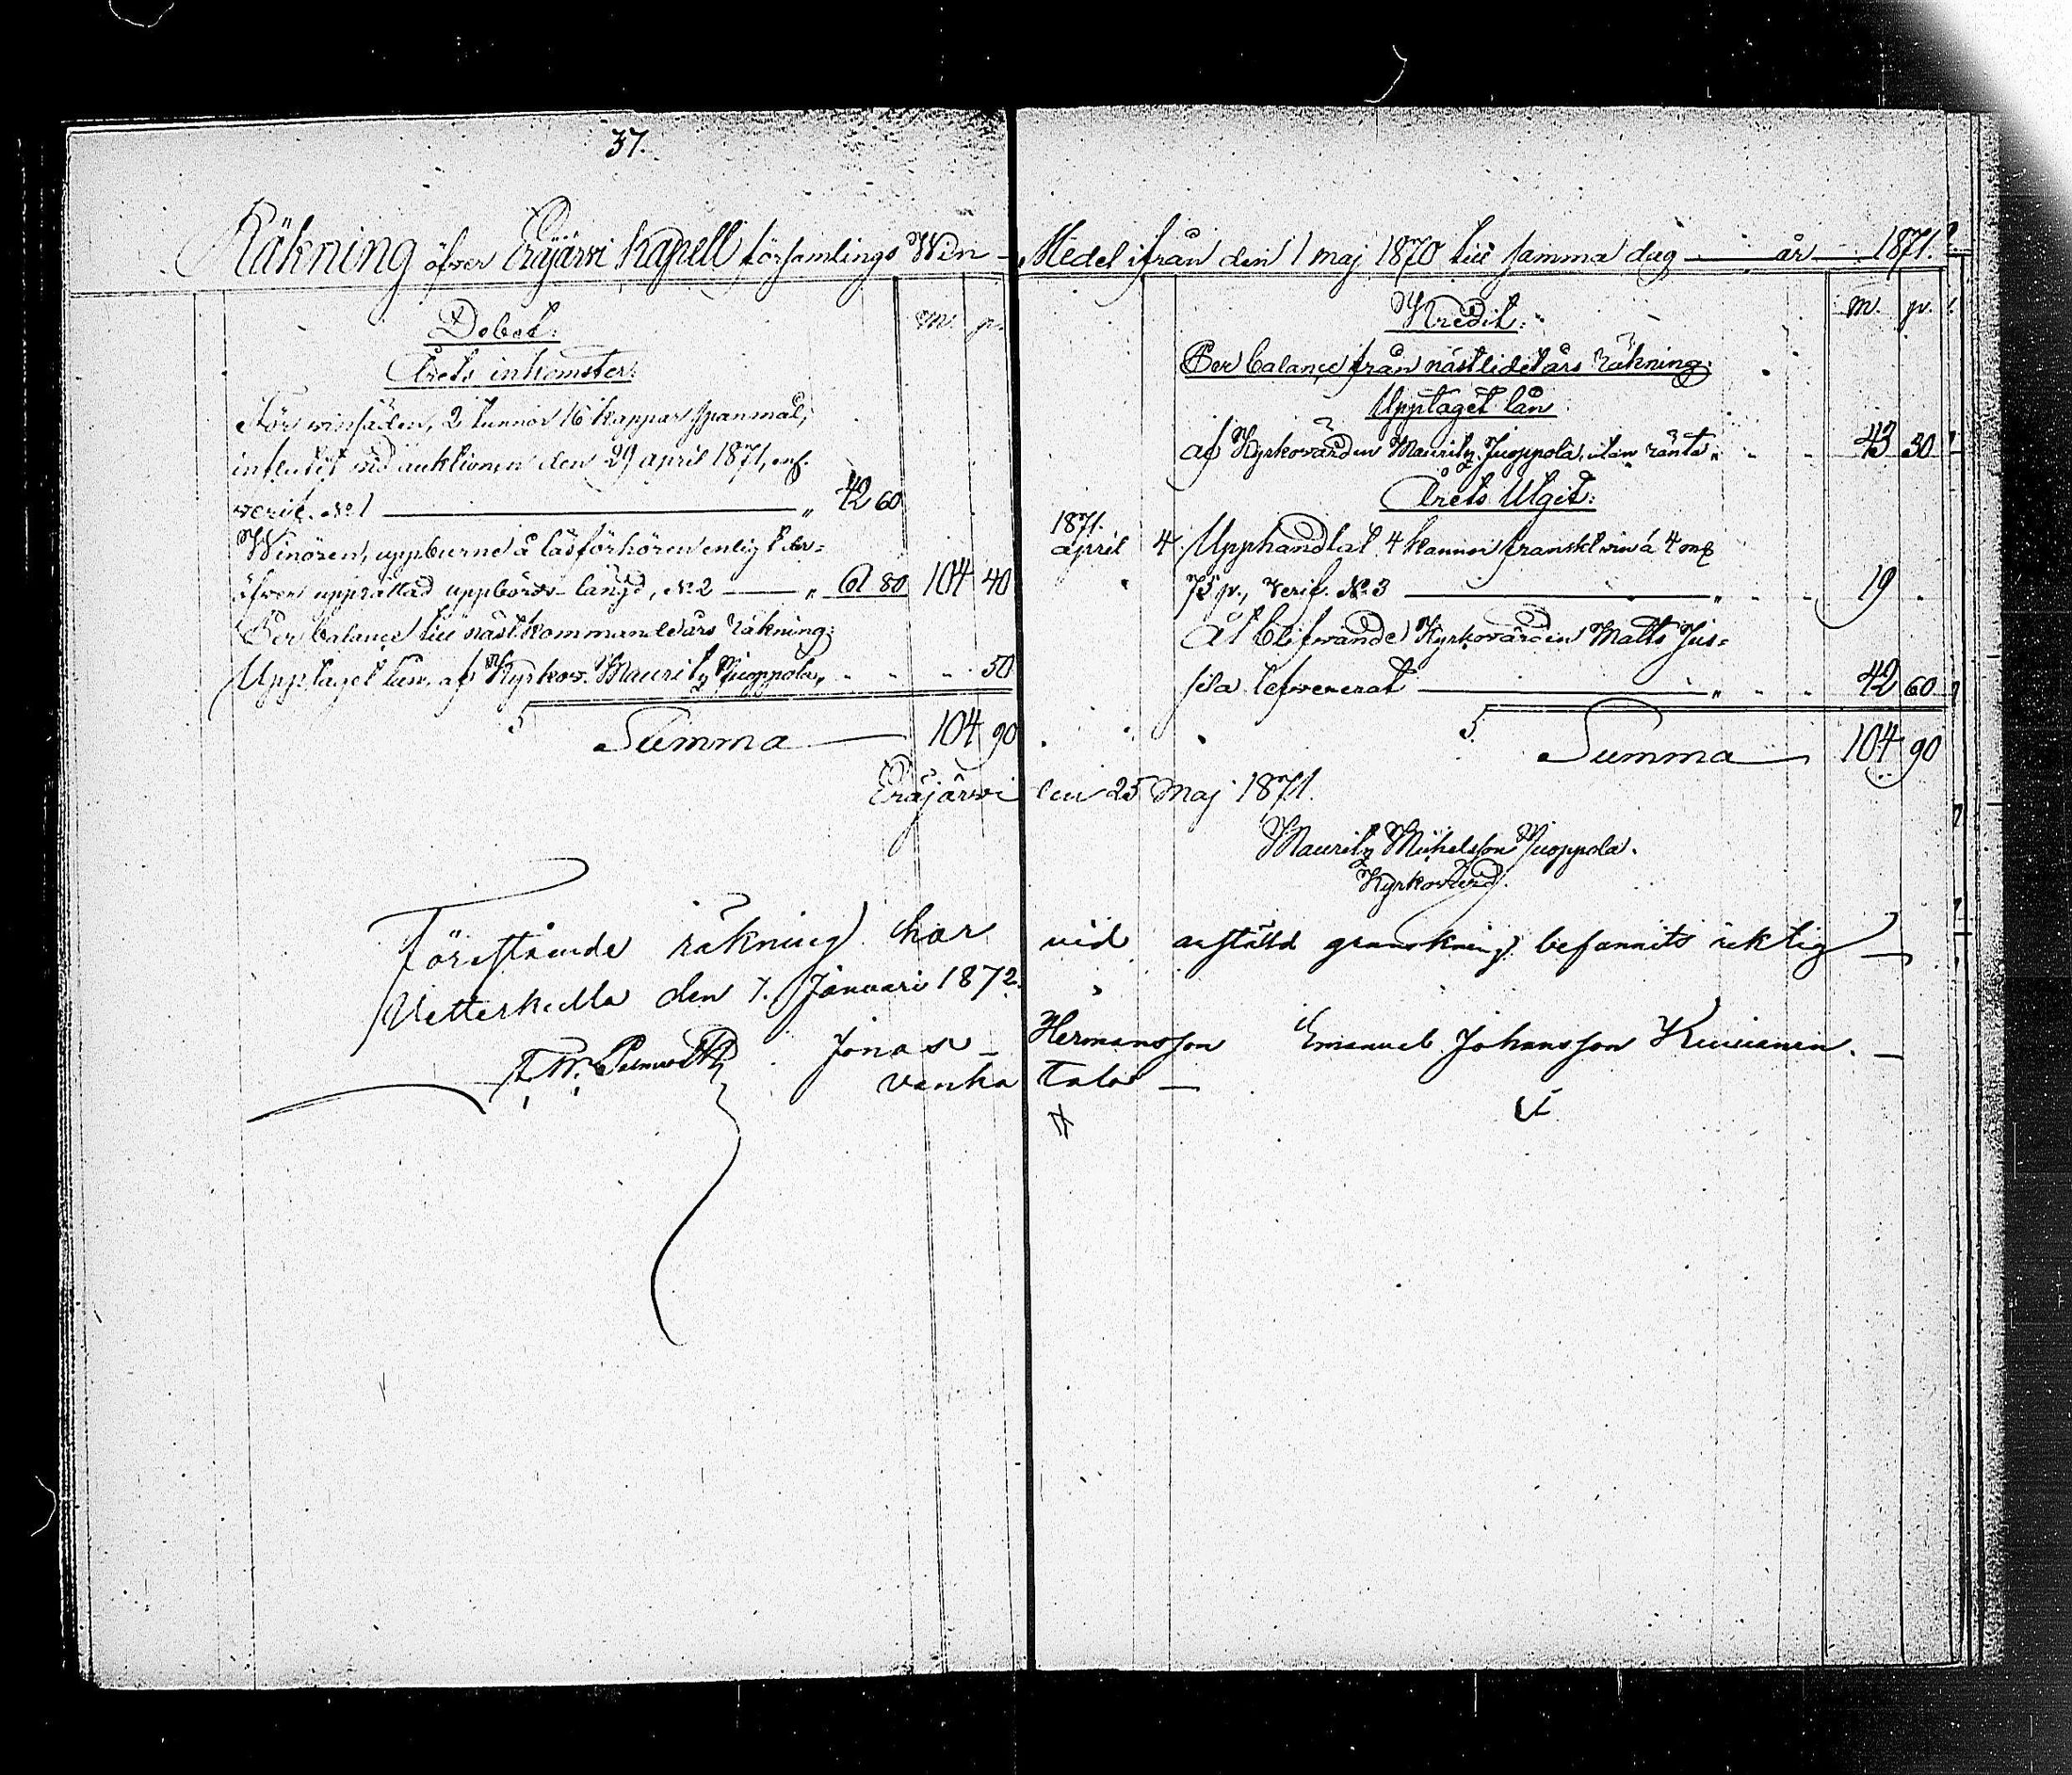 37.
Räkning öfver Eräjärvi Kapell församlings Win-Medel ifrån den 1 maj 1870 till samma dag — år — 1871.
Debet:
m. p.
Årets inkomster:
För vinsäden, 2 tunnor 16 kappar spanmål,
influtit vid auktionen den 29 april 1871, enl.
verif. No 1 — „ 42 60
Winören, uppburne å läsförhören enligt der-
öfver upprättad uppbörds längd, No 2 — „ 61 80 104 40
Per balance till nästkommande års räkning:
Upptaget lån af Kyrkov. Mauritz Juoppola, 50
S. Summa — 104 90
Kredit:
m. p.
Per balance från nästlidet års räkning:
Upptaget lån
af Kyrkovärden Mauritz Juoppola, utan ränta „ 43 30
Årets Utgift:
1871.
april 4. Upphandlat 4 kannor franskt vin á 4 mk
75 p., Verif. No 3 — „ 19 .
Åt blifvande Kyrkovärden Matts Jus-
sila lefvererat — „ 42 60
S. Summa — 104 90
Eräjärvi den 25 Maj 1871.
Mauritz Michelsson Juoppola.
Kyrkovärd.
Förestående räkning har vid anställd granskning befannits riktig —
Vetterkulla den 7. Januari 1872.
Jonas — Hermansson Emanuel Johansson —
Vanha Talo —